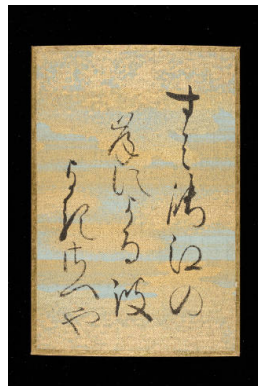 すみの江の
岸による波
よるさへや